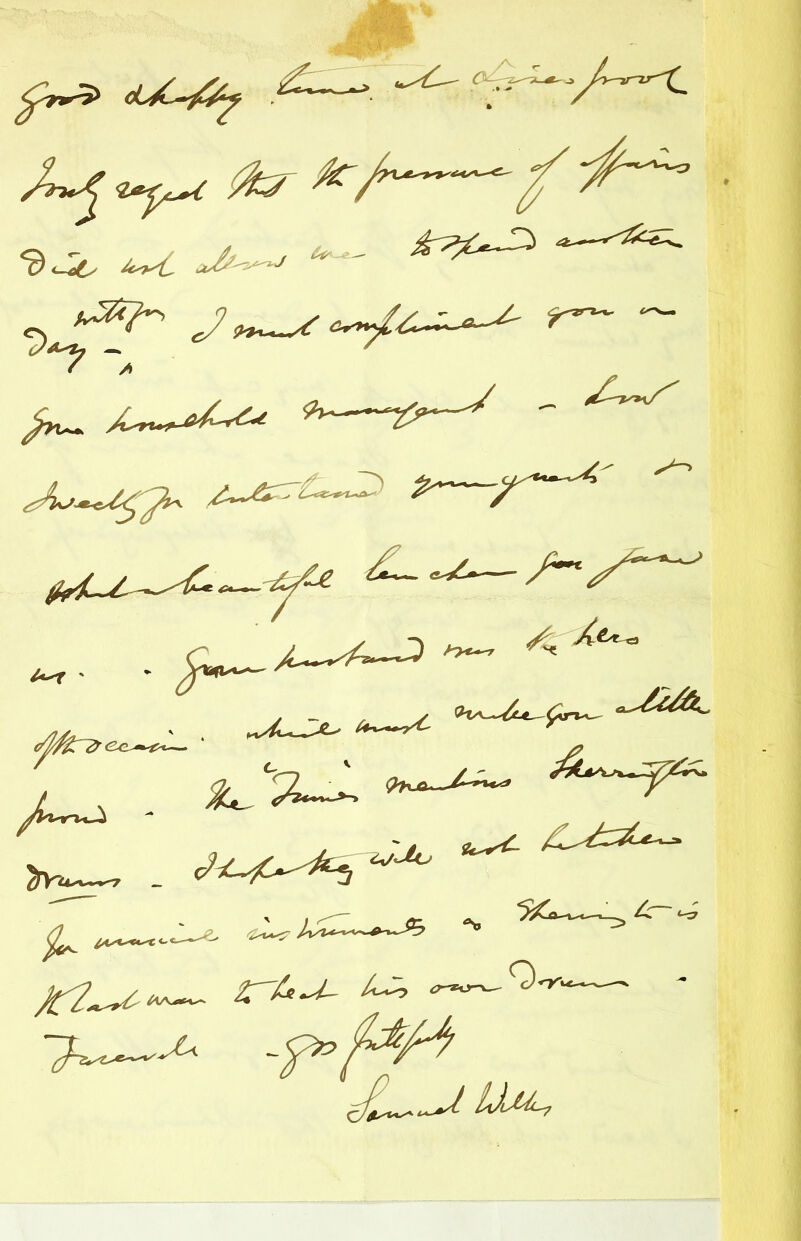 good & happy time at Liverpool
I only regret that the pressure of affairs
did not allow me to spend another
day - with you I must compliment you on
your household management - &
sweetly you entertained your guests &
what a beautiful luncheon you gave
us. . Your husband was the hero
of the occasion. which must make you a little
proud . The "Times" mentions Sherrington
drums - I hope they will not be taken
for musical instruments as Sherrington is
the last man to beat his own drum .
Farewell - yrs faithfully
Samuel Wilks